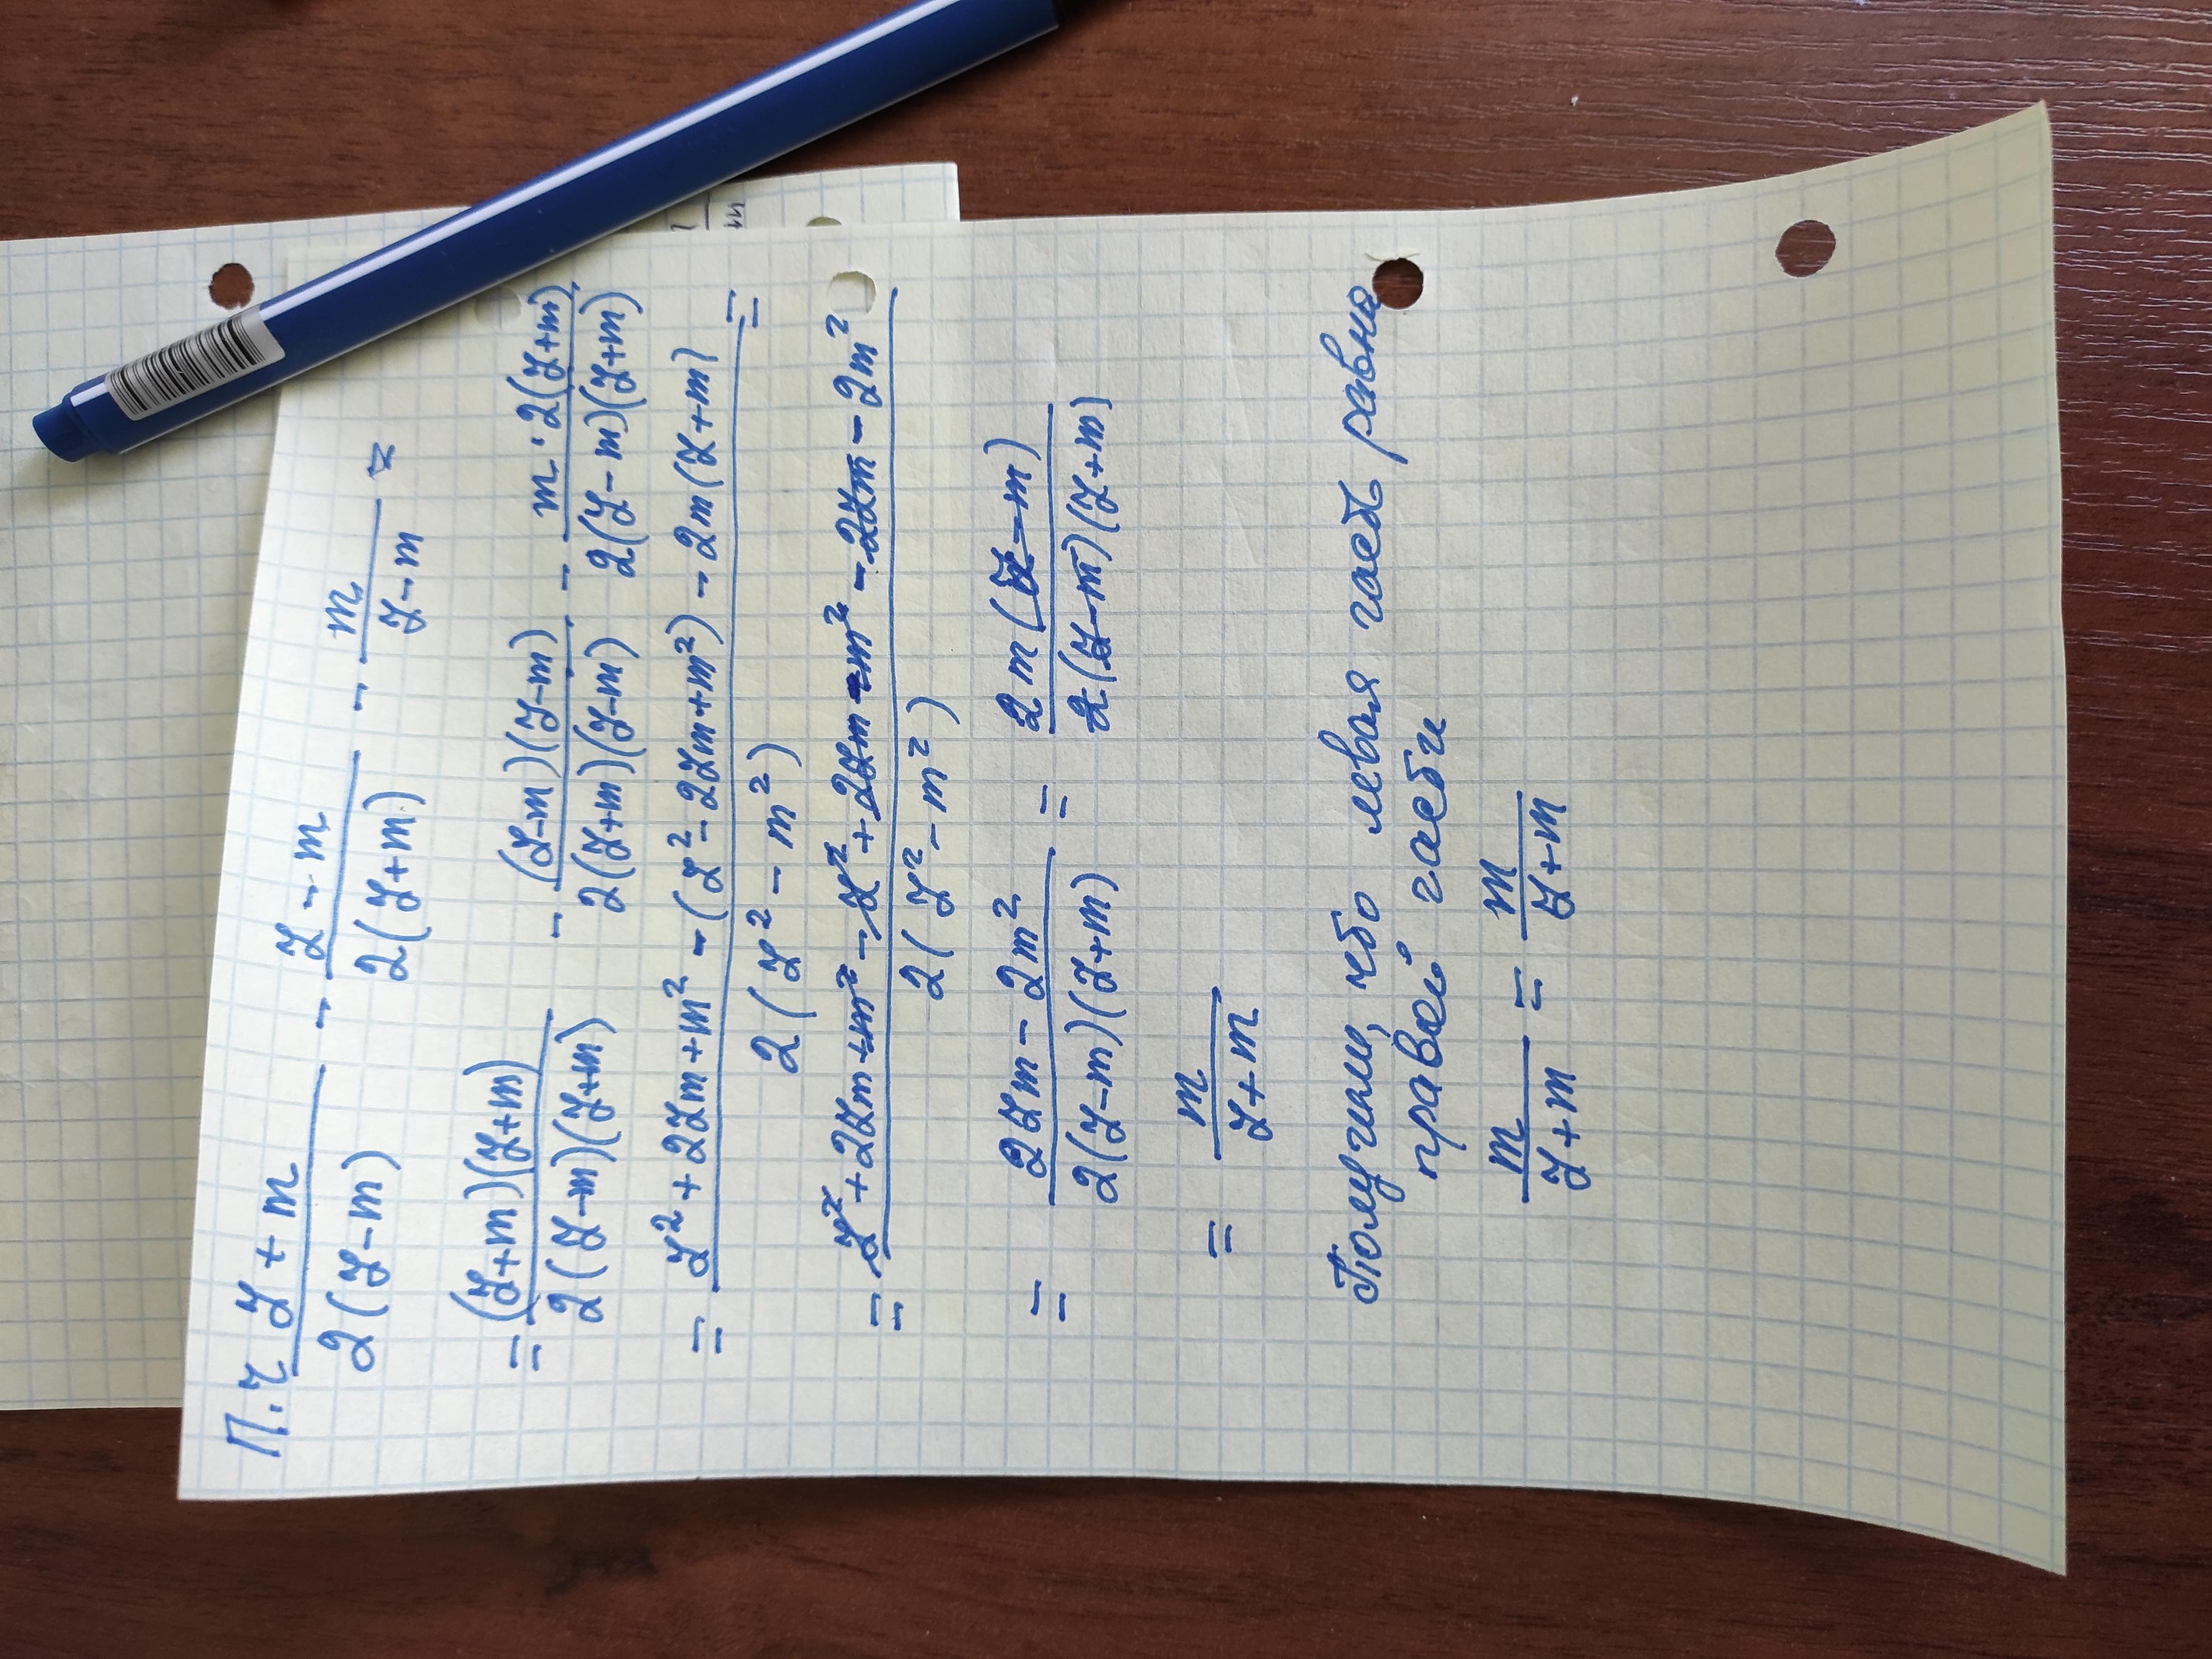 П.ч. (y+m)/(2(y-m)) - (y-m)/(2(y+m)) - m/(y-m) =
= ((y+m)(y+m))/(2(y-m)(y+m)) - ((y-m)(y-m))/(2(y+m)(y-m)) - (m·2(y+m))/(2(y-m)(y+m))
= (y²+2ym+m²-(y²-2ym+m²)-2m(y+m))/(2(y²-m²)) =
= (y²+2ym+m²-y²+2ym-m²-2ym-2m²)/(2(y²-m²))
= (2ym-2m²)/(2(y-m)(y+m)) = (2m(y-m))/(2(y-m)(y+m))
= m/(y+m)
Получили, что левая часть равна
правой части
m/(y+m) = m/(y+m)